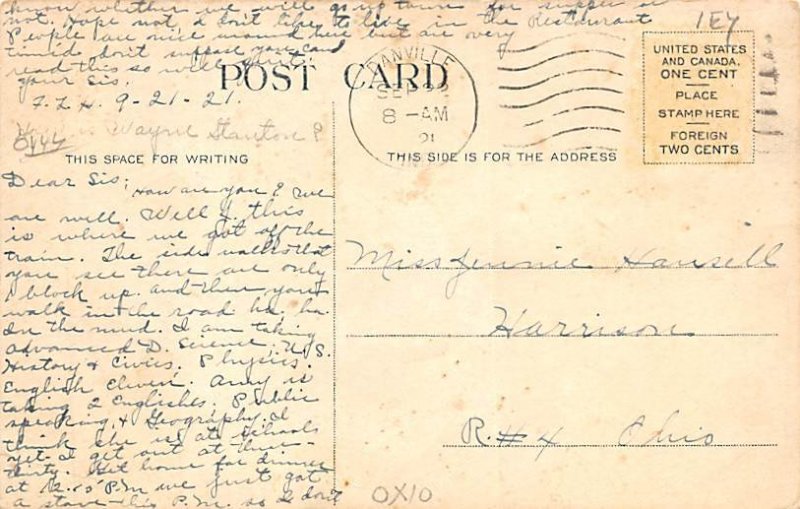 know whether we will go up town for supper or
not. Hope not I don't like to live in the Restaurant
People are nice around here but are very
timid don't suppose you can
read this so will quit.
your Sis.
F.L.H. 9-21-21.
1EY
POST CARD
DANVILLE
SEP 22
8-AM
21
UNITED STATES
AND CANADA,
ONE CENT
PLACE
STAMP HERE
FOREIGN
TWO CENTS
Wayne Stanton
THIS SPACE FOR WRITING
THIS SIDE IS FOR THE ADDRESS
Dear Sis;
How are you? we
are well. Well J. this
is where we got off the
train. The side walks that
you see there are only
1 block up. and then you
walk in the road ha. ha.
In the mud. I am taking
advanced D. Science. U.S.
History & Civics. Physics.
English Eleven. Amy is
taking 2 Englishes. Public
speaking, & Geography. I
think she is at School
yet. I get out at
thirty. Get home for dinner
at 12.05 P.M we just got
a stove this P.M. so I don't
Miss Jennie Hansell
Harrison
R.#4 Ohio
OX10